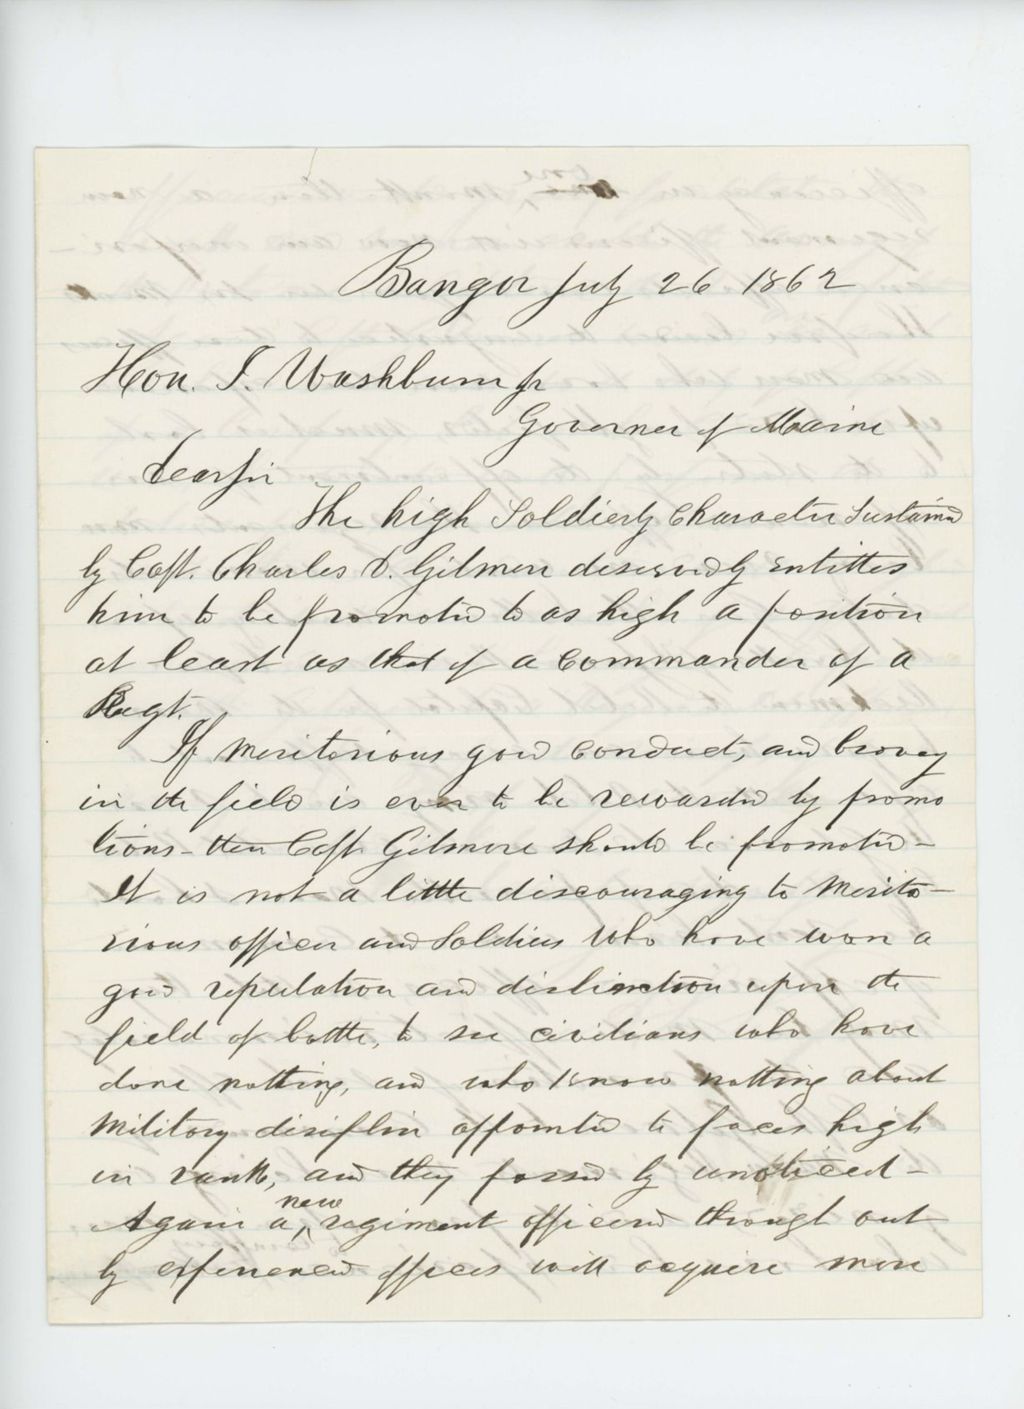 Bangor July 26 1862
Hon. I. Washburn Jr
Governer of Maine
Dear Sir
The high Soldierly Character Sustained
by Capt. Charles D. Gilmore deservedly entittes
him to be promoted to as high a position
at least as that of a Commander of a
Regt.
If meritorious good conduct, and bravey
in the field is ever to be rewarded by promo
tions - then Capt Gilmore should be promoted -
It is not a little discouraging to merito-
rious officer and Soldiers who have won a
good reputation and distinction upon the
field of battle, to see civilians who have
done nothing, and who know nothing about
military disiplin appointed to places high
in rank, and they passed by unoticed -
Again a new regiment officered through out
by experienced offices will acquire more